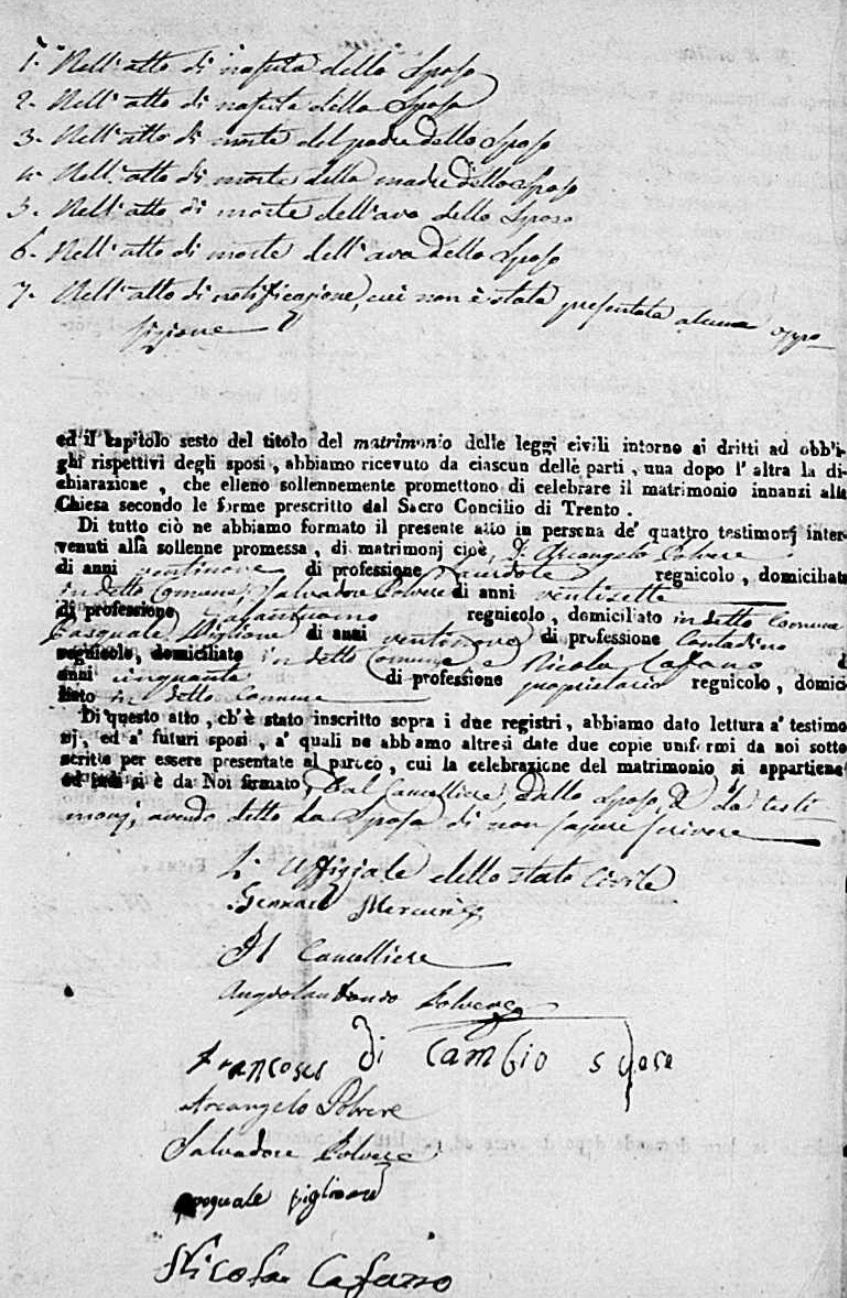 1. Nell'atto di nascita dello Sposo
2. Nell'atto di nascita della Sposa
3. Nell'atto di morte del padre dello Sposo
4. Nell'atto di morte della madre dello Sposo
5. Nell'atto di morte dell'avo dello Sposo
6. Nell'atto di morte dell'ava dello Sposo
7. Nell'atto di notificazione, cui non è stata presentata alcuna oppo
sizione
ed il capitolo sesto del titolo del matrimonio delle leggi civili intorno ai dritti ad obb'i-
ghi rispettivi degli sposi, abbiamo ricevuto da ciascun delle parti, una dopo l'altra la di-
chiarazione, che elleno sollennemente promettono di celebrare il matrimonio innanzi alla
Chiesa secondo le forme prescritto dal Sacro Concilio di Trento.
Di tutto ciò ne abbiamo formato il presente atto in persona de' quattro testimonj inter-
venuti alla sollenne promessa, di matrimonj cioè, D. Arcangelo Polvere
di anni ventinove di professione Sacerdote regnicolo, domiciliato
in detto Comune, Salvadore Polvere di anni ventisette
di professione galantuomo regnicolo, domiciliato in detto Comune
Pasquale Piglione di anni ventinove di professione Contadino
regnicolo, domiciliato in detto Comune e Nicola Cafano d
anni cinquanta di professione proprietario regnicolo, domici
liato in detto Comune
Di questo atto, ch'è stato inscritto sopra i due registri, abbiamo dato lettura a' testimo
nj, ed a' futuri sposi, a' quali ne abbiamo altresì date due copie uniformi da noi sotto
scritte per essere presentate al parroco, cui la celebrazione del matrimonio si appartiene
ed indi si è da Noi firmato, Dal Cancelliere, dallo Sposo, e da testi
monj, avendo detto la Sposa di non sapere scrivere
L'Uffiziale dello stato Civile
Gennaro
Il Cancelliere
Angiolantonio Polvere
Francoses di Cambio spose
Arcangelo Polvere
Salvadore Polvere
pasquale piglione
Nicola Cafano